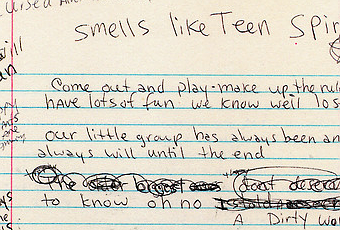 smells like Teen Spir
Come out and play - make up the rul
have lots of fun we know we'll los
our little group has always been an
always will until the end
The
dont deserve
to know oh no
A Dirty wor